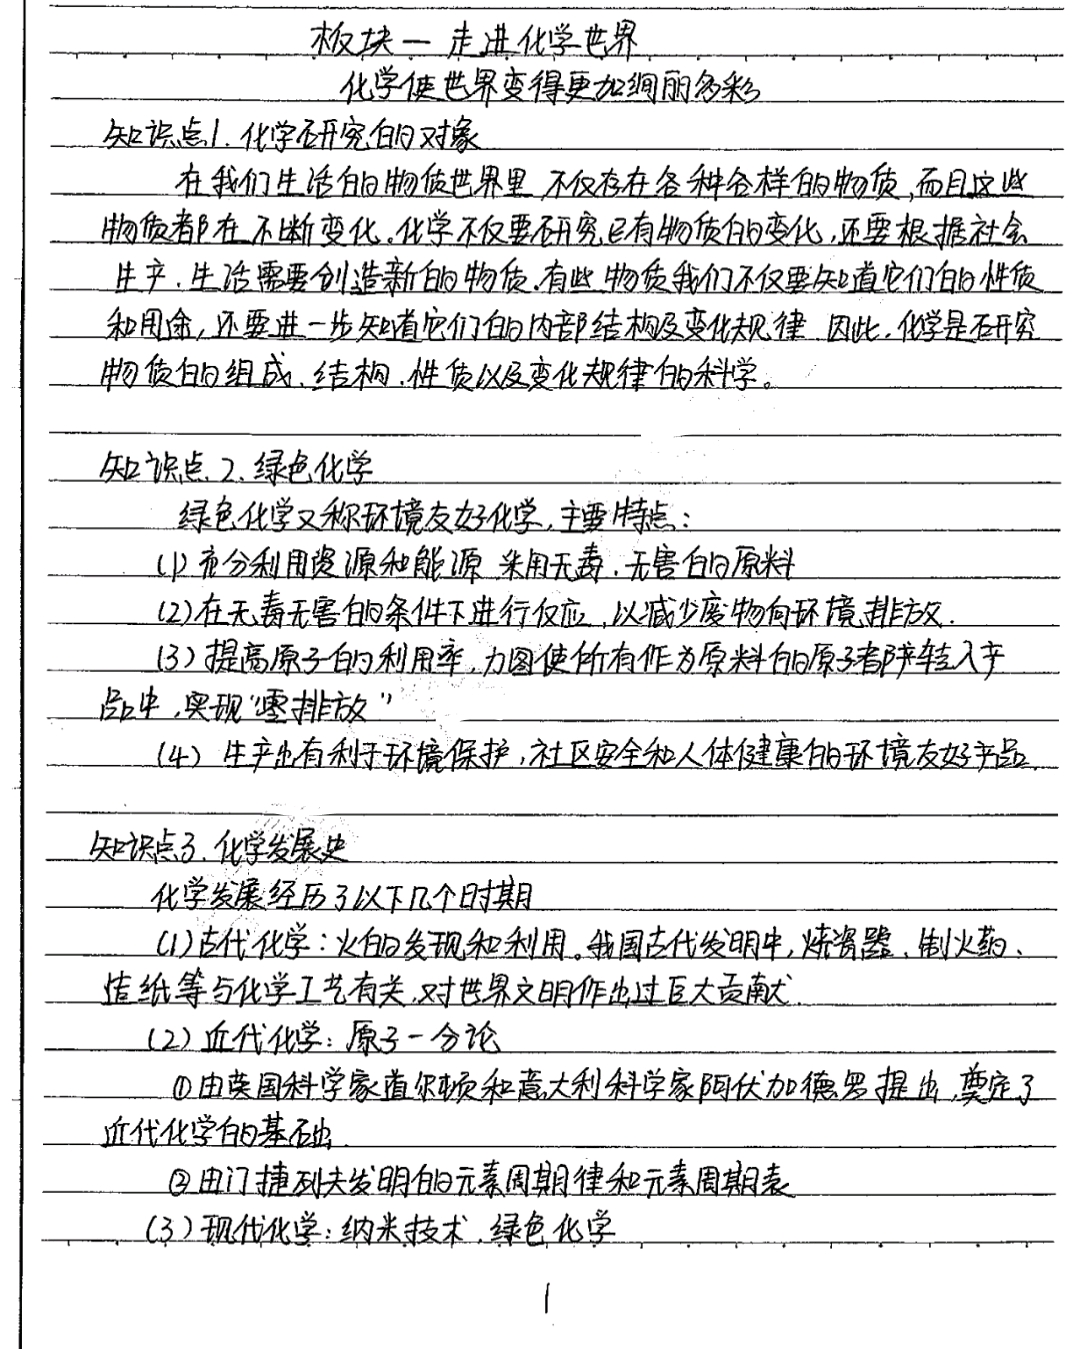 板块一 走进化学世界
化学使世界变得更加绚丽多彩
知识点1.化学研究的对象
在我们生活的物质世界里,不仅存在各种各样的物质,而且这些
物质都在不断变化。化学不仅要研究已有物质的变化,还要根据社会
生产、生活需要创造新的物质.有些物质我们不仅要知道它们的性质
和用途,还要进一步知道它们的内部结构及变化规律 因此,化学是研究
物质的组成、结构、性质以及变化规律的科学。
知识点.2.绿色化学
绿色化学又称环境友好化学,主要特点:
(1)充分利用资源和能源 采用无毒.无害的原料
(2)在无毒无害的条件下进行反应,以减少废物向环境排放.
(3)提高原子的利用率,力图使所有作为原料的原子都转入产
品中,实现“零排放”
(4)生产出有利于环境保护,社区安全和人体健康的环境友好产品.
知识点3.化学发展史
化学发展经历了以下几个时期
(1)古代化学:火的发现和利用。我国古代发明中,烧瓷器、制火药、
造纸等与化学工艺有关,对世界文明作出过巨大贡献.
(2)近代化学:原子一分论
①由英国科学家道尔顿和意大利科学家阿伏加德罗提出,奠定了
近代化学的基础.
②由门捷列夫发明的元素周期律和元素周期表
(3)现代化学:纳米技术、绿色化学
1